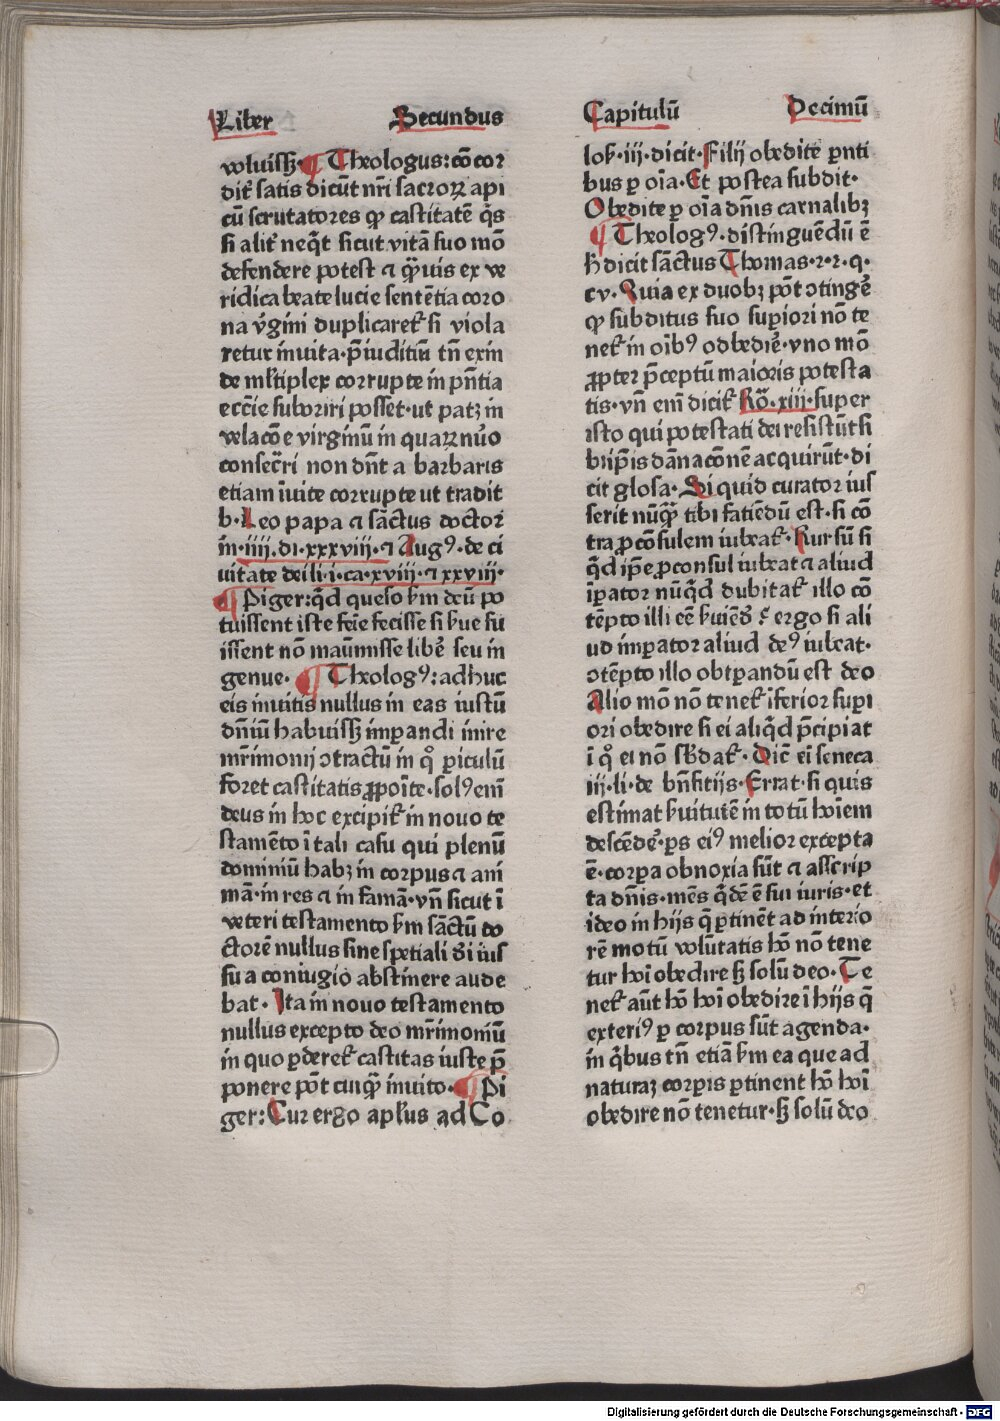 Liber Secundus
Capitulū Decimū
voluissꝫ. ¶ Theologus: cōcor
dit᷒ satis dicūt nr̄i sacroꝝ api
cū scrutatores ꝙ castitatē q̄s
si alit᷒ neq̄t sicut vitā suo mō
defendere potest ⁊ ꝙ̄uis ex ve
ridica beate lucie sentētia coro
na v᷒gini duplicaret᷒ si viola
retur inuita. p̄iuditiū tn̄ exin
de ml̓tiplex corrupte in pn̄tia
ecc̄ie suboriri posset. ut patꝫ in
velacōe virginū in quaꝝ nūo
consec̄ri non dn̄t a barbaris
etiam īuite corrupte ut tradit
b. Leo papa ⁊ sāctus doctor
in. iiii. di. xxxviii. ⁊ Augꝰ. de ci
uitate dei li. i. ca. xviii. ⁊ xxviii.
¶ Piger: q̄d queso ẜm deū po
tuissent iste feīe fecisse si ẜue fu
issent nō maūmisse libe᷒ seu in
genue. ¶ Theologꝰ: adhuc
eis inuitis nullus in eas iustū
dn̄iū habuissꝫ imperandi inire
mr̄imonij ɔtractū in q̊ ꝑiculū
foret castitatis ꝓpoīte. solꝰ enī
deus in hoc excipit᷒ in nouo te
stamēto ī tali casu qui plenū
dominiū habꝫ in corpus ⁊ ani
mā. in res ⁊ in famā. vn̄ sicut ī
veteri testamento ẜm sāctū do
ctorē nullus sine spetiali dī ius
su a coniugio abstinere aude
bat. Ita in nouo testamento
nullus excepto deo mr̄imoniū
in quo ꝑderet᷒ castitas iuste p̄
ponere pōt cuiꝙ̄ inuito. ¶ Pi
ger: Cur ergo apl̓us ad Co
loẜ. iij. dicit. Filij obedite ꝑnti
bus ꝑ oīa. Et postea subdit.
Obedite ꝑ oīa dn̄is carnalibꝫ
¶ Theologꝰ. distinguēdū ē
ħ dicit sāctus Thomas. 2. 2. q.
cv. Quia ex duobꝫ pōt ɔtinge᷒
ꝙ subditus suo suꝑiori nō te
net᷒ in oībꝰ odbedie᷒. vno mō
ꝓpter p̄ceptū maioris potesta
tis. vn̄ enī dicit᷒ Rō. xiii. super
isto qui potestati dei resistūt si
bi ip̄is dānacōnē acquirūt. di
cit glosa. Si quid curator ius
serit nūꝙ̄ tibi fatiēdū est. si cō
tra ꝓcōsulem iubeat᷒. Rursū si
q̄d ip̄e ꝓconsul iubeat ⁊ aliud
īꝑator nūq̄d dubitat᷒ illo cō
tēpto illi eē ẜuiēdū ergo si ali
ud imꝑator aliud deꝰ iubeat.
ɔtēpto illo obtꝑandū est deo
Alio mō nō tenet᷒ īferior suꝑi
ori obedire si ei aliq̄d p̄cipiat
ī q̊ ei nō sb̄dat᷒. Dic̄ eī seneca
iij. li. de bn̄fitijs. Errat. si quis
estimat ẜuitutē in totū hoīem
descēde᷒. ꝑs eiꝰ melior excepta
ē. corꝑa obnoxia sūt ⁊ asscrip
ta dn̄is. mēs q̄dē ē sui iuris. et
ideo in hijs q̄ ꝑtinēt ad interio
rē motū volūtatis hō nō tene
tur hoī obedire sꝫ solū deo. Te
net᷒ aūt hō hoī obedire ī hijs q̄
exteriꝰ ꝑ corpus sūt agenda.
in q̄bus tn̄ etiā ẜm ea que ad
naturaꝫ corꝑis ꝑtinent hō hoī
obedire nō tenetur. sꝫ solū deo
Digitalisierung gefördert durch die Deutsche Forschungsgemeinschaft - DFG